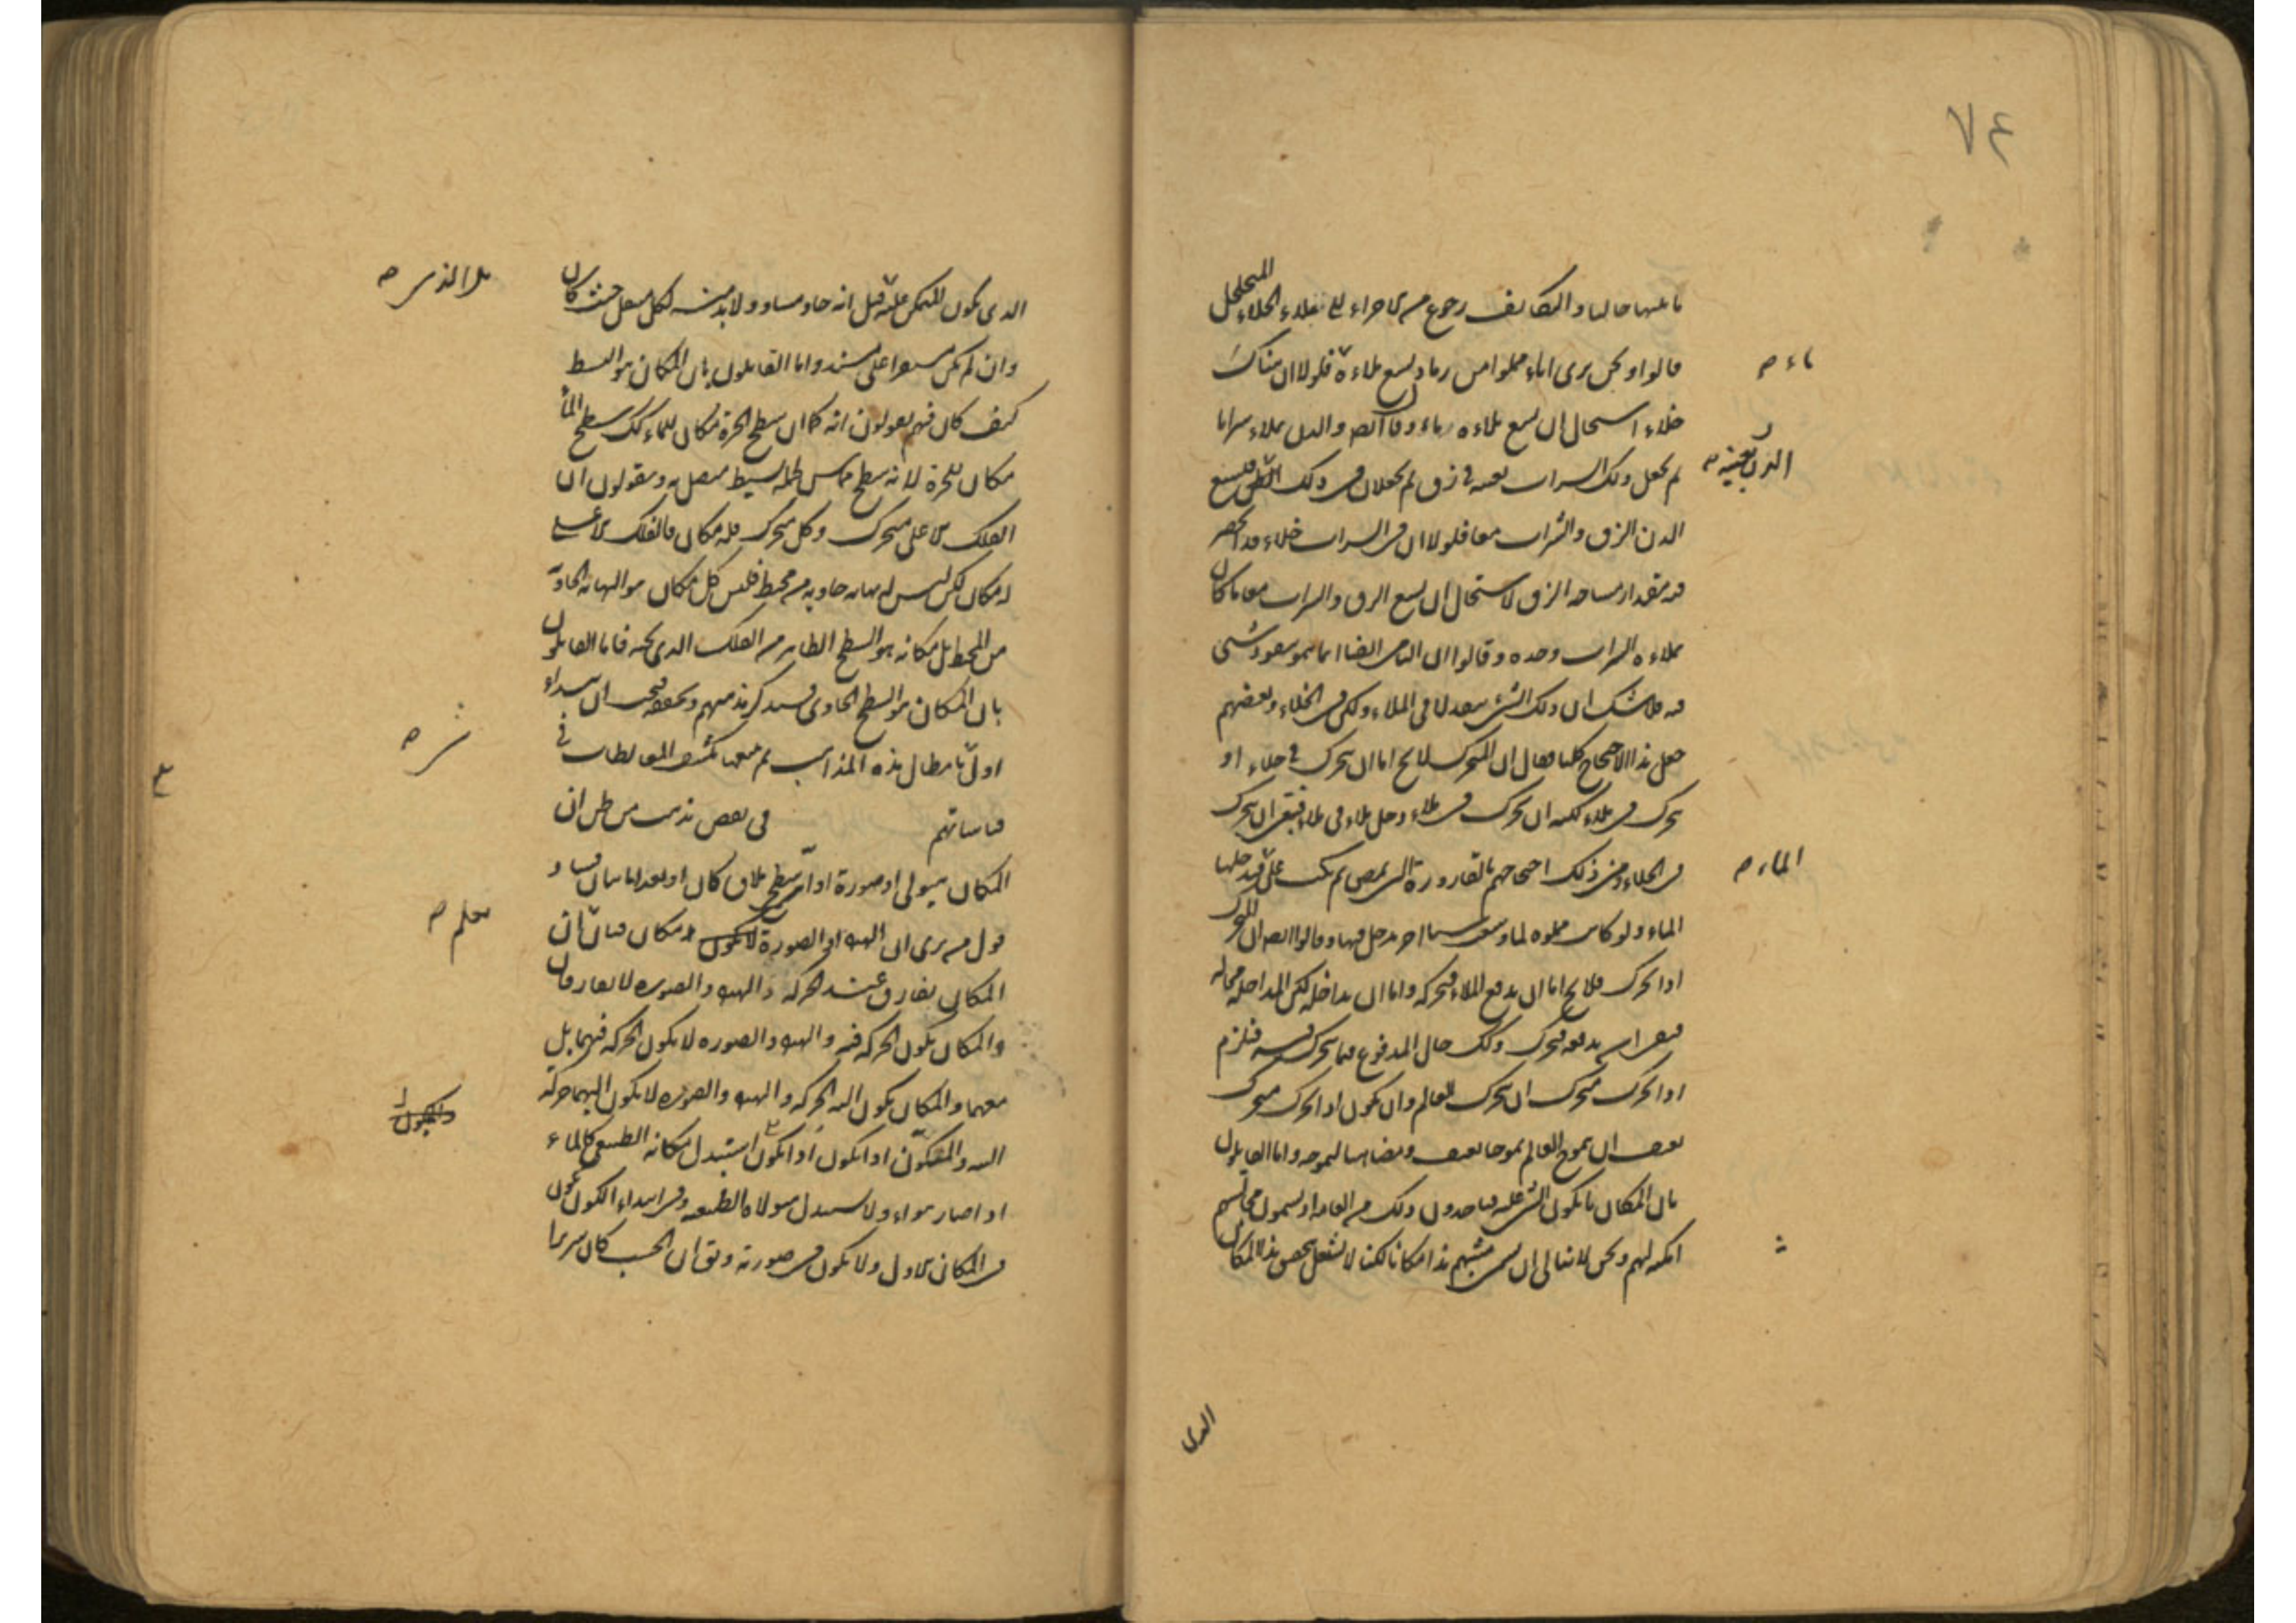 ٧٤
ما بينها خاليا والتكاثف رجوع من الاجزاء الى ملاء الخلاء المتخلخل
قالوا ونحن نرى اناء مملوا من رماد يسع ملاءه فلولا ان هناك
ماء صح
خلاء استحال ان يسع ملاءه ماء وقالوا ايضا والدن يملاء شرابا
ثم يجعل ذلك الشراب بعينه في زق ثم يجعلان في ذلك الدن فيسع
الدن بعينه صح
الدن الزق والشراب معا فلولا ان في الشراب خلاء قد انحصر
فيه مقدار مساحة الزق لاستحال ان يسع الزق والشراب معا ما كان
يملاءه الشراب وحده وقالوا ان النامي ايضا انما ينمو بنفوذ شي
فيه ولا شك ان ذلك الشي ينفذ لا في الملاء ولكن في الخلاء وبعضهم
جعل هذا الاحتجاج كليا فقال ان المتحرك لا يخ اما ان يتحرك في خلاء او
يتحرك في ملاء لكنه ان تحرك في ملاء دخل ملاء في ملاء فبقي ان يتحرك
في الخلاء ومن ذلك احتجاجهم بالقارورة التي تمص ثم تكب على فيدخلها
الماء صح
الماء ولو كانت مملوه لما وسعت شيا اخر يدخل فيها وقالوا ايضا ان المتحرك
اذا تحرك فلا يخ اما ان يدفع الملاء فيحركه واما ان يداخله لكن المداخلة محاله
فبقي ان يدفعه فيتحرك وكذلك حال المدفوع فيما يتحرك فيه فيلزم
اذا تحرك متحرك ان يتحرك العالم وان يكون اذا تحرك متحرك
بعنف ان يموج العالم تموجا بعنف ويضاهيا لتموجه واما القايلون
بان المكان ما يكون الشي عليه فياخذون ذلك من العامه اذ يسمون مجالسهم
امكنه لهم ونحن لا نبالي ان يسمي مسميهم هذا مكانا لكنا لا نشتغل بتحقيق هذا المكان
الذي
الذي يكون المتمكن عليه قيل انه حاو مساو ولا بد منه لكل منتقل حيث كان
بل الذي صح
وان لم يكن مستقرا على مستند واما القايلون بان المكان هو البسيط
كيف كان فهم يقولون انه كما ان سطح الجرة مكان للماء كذلك سطح الماء
مكان للجرة لانه سطح مماس لجملة بسيط متصل به ويقولون ان
الفلك الاعلى متحرك وكل متحرك فله مكان فالفلك الاعلى
له مكان لكن ليس له نهاية حاوية من محيط فليس كل مكان هو النهاية الحاوية
من المحيط بل مكانه هو السطح الظاهر من الفلك الذي تحته فاما القايلون
بان المكان هو السطح الحاوي فسنذكر مذهبهم ونحققه فيجب ان نبداء
اولا بابطال هذه المذاهب ثم نتبعها بكشف المغالطات في
قياساتهم فى نقض مذهب من ظن ان
المكان هيولى او صورة او اي سطح ملاق كان او بعد اما بيان فساد
قول من يرى ان الهيولى او الصورة مكان فبان ان
يعلم صح
المكان يفارق عند الحركه والهيولى والصوره لا يفارقان
والمكان يكون الحركه فيه والهيولى والصوره لا يكون الحركه فيهما بل
معهما والمكان يكون اليه الحركه والهيولى والصوره لا يكون اليهما حركه
البته والمتكون اذا تكون استبدل مكانه الطبيعى كالماء
اذا صار هواء ولا يستبدل هيولاه الطبيعيه وفي ابتداء الكون يكون
في المكان الاول ولا يكون في صورته ويق ان الخشب كان سريرا